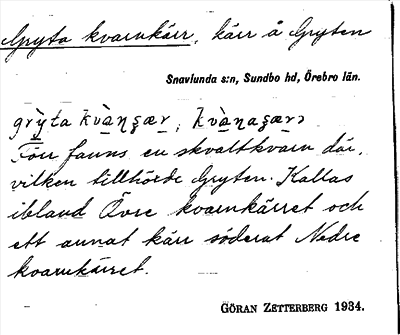 Gryta kvarnkärr, kärr å Gryten
Snavlunda s:n, Sundbo hd, Örebro län.
Förr fanns en skvaltkvarn där,
vilken tillhörde Gryten. Kallas
ibland Övre kvarnkärret och
ett annat kärr söderut Nedre
kvarnkärret.
GÖRAN ZETTERBERG 1934.